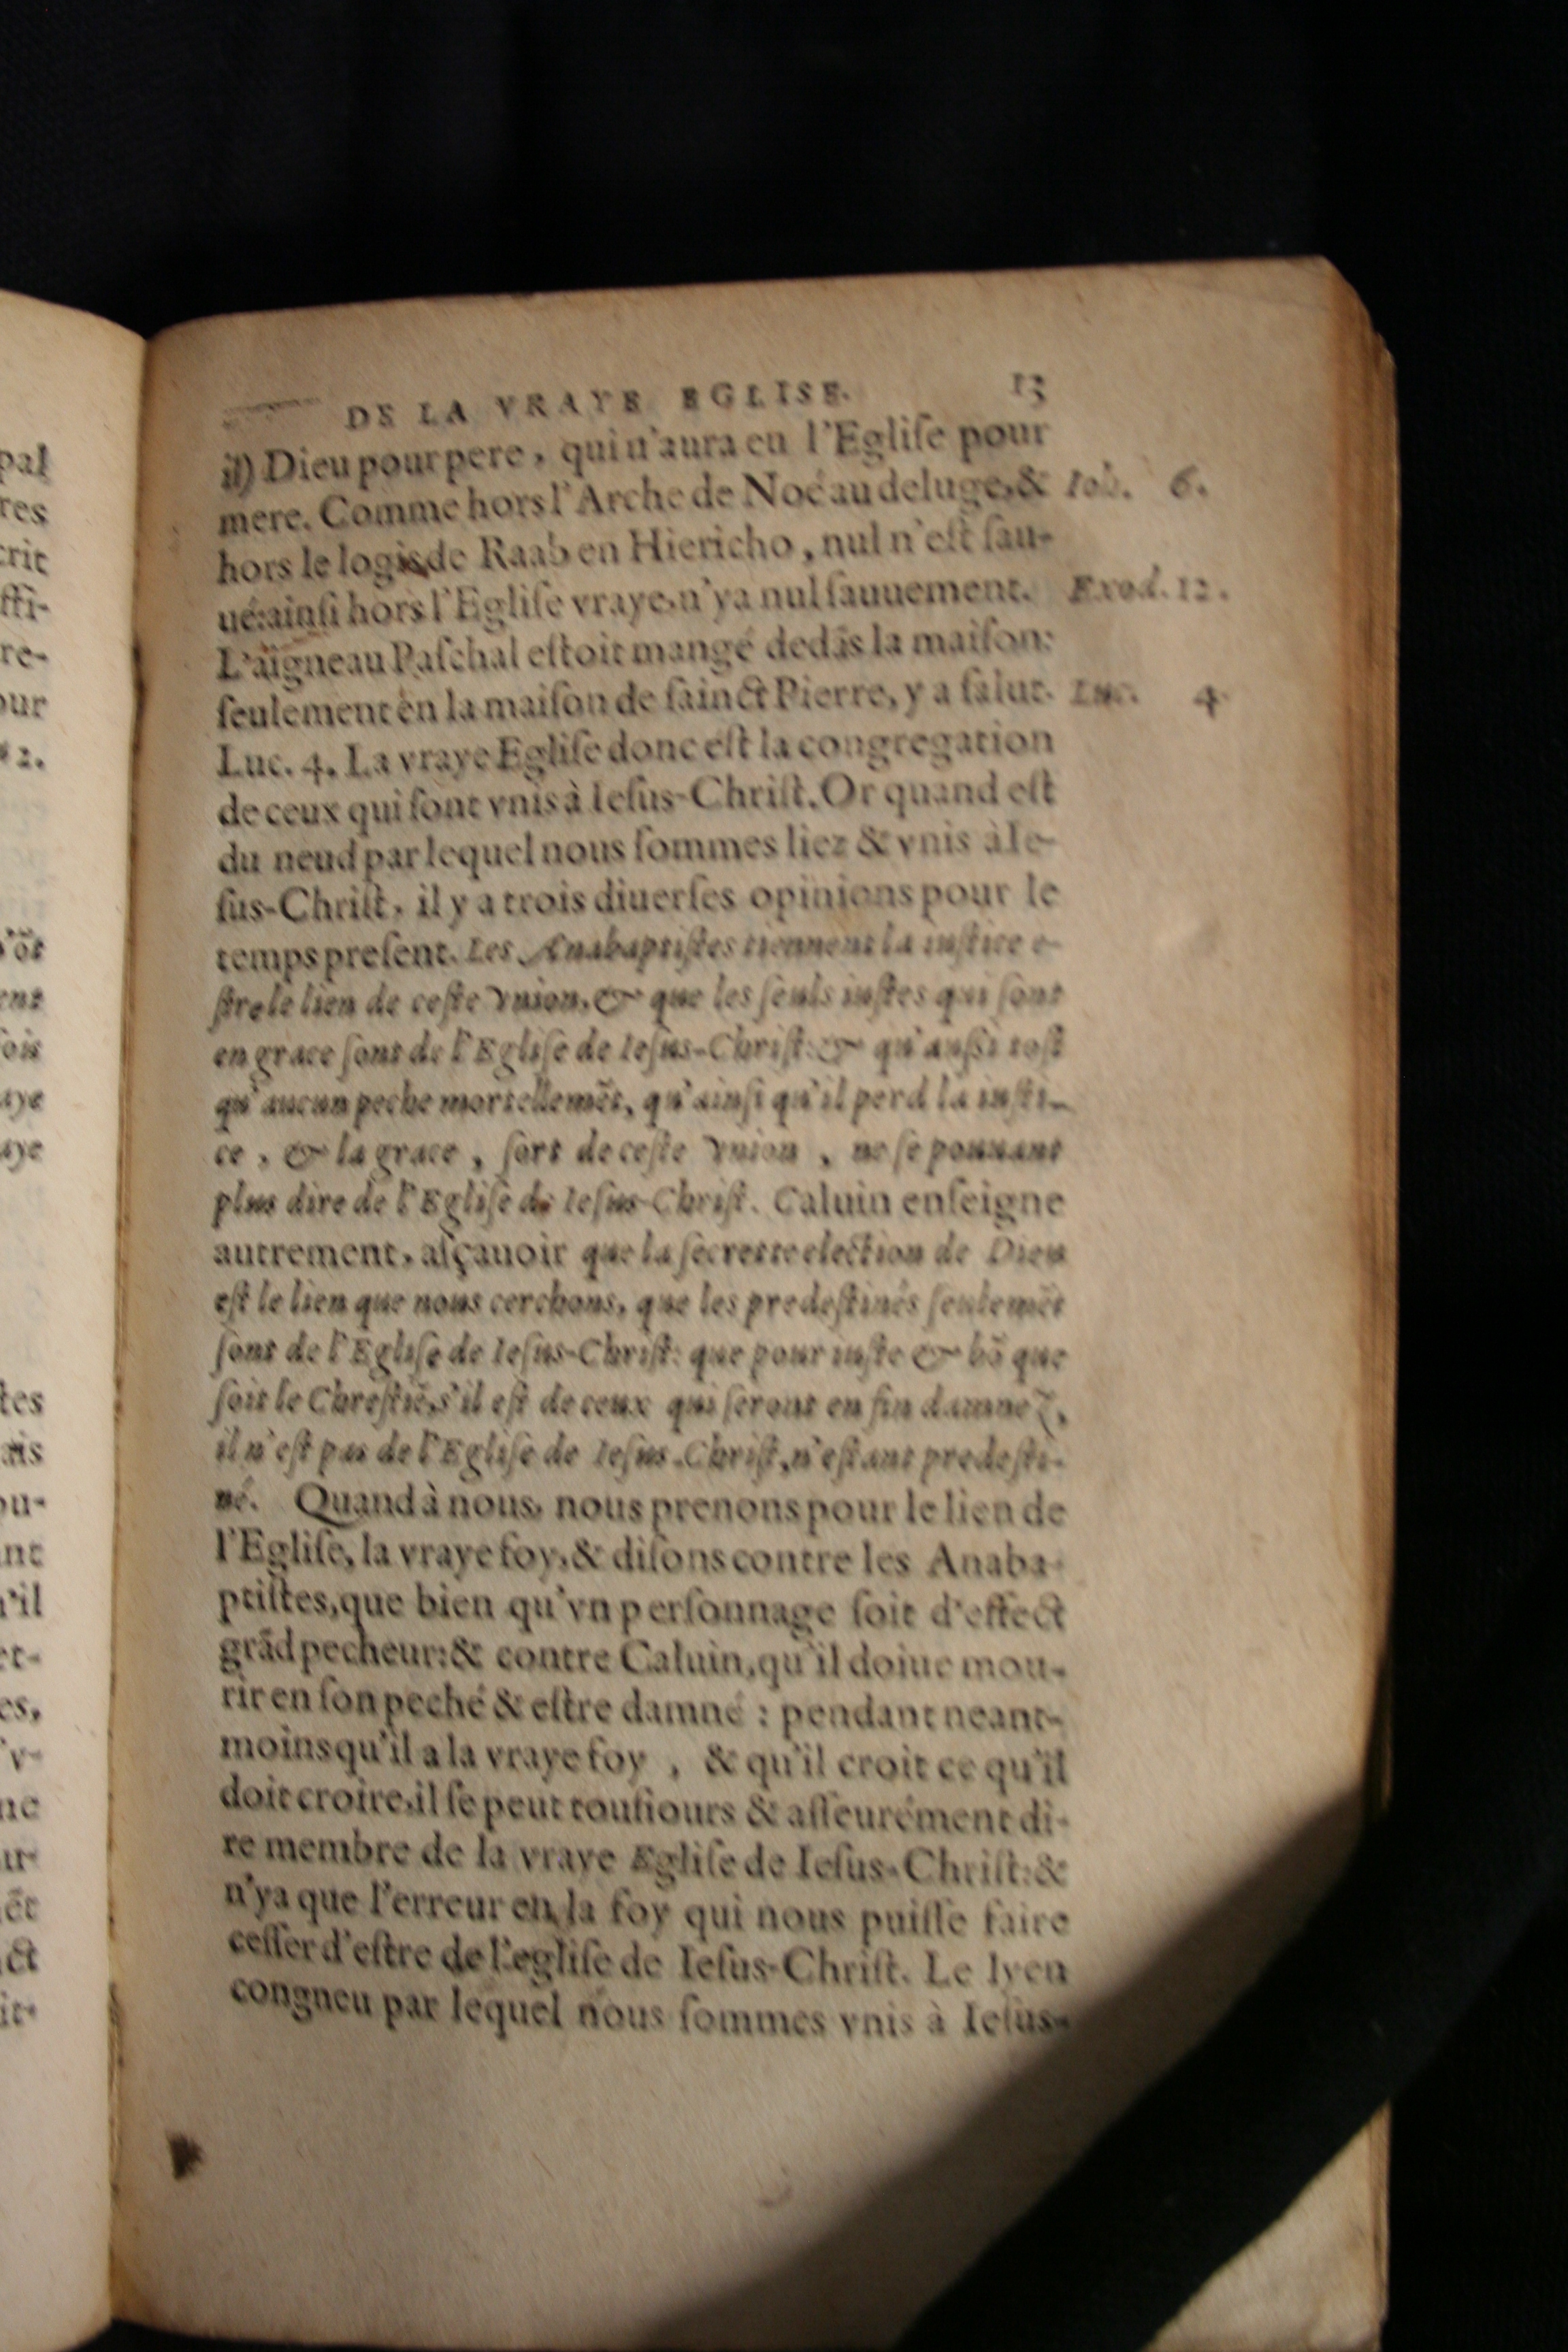 DE LA VRAYE EGLISE. 13
il) Dieu pour pere, qui n'aura eu l'Egliſe pour
mere. Comme hors l'Arche de Noé au deluge, &
hors le logis de Raab en Hiericho, nul n'eſt ſau-
ué: ainſi hors l'Egliſe vraye, n'y a nul ſauuement.
L'aigneau Paſchal eſtoit mangé dedãs la maiſon:
ſeulement en la maiſon de ſainct Pierre, y a ſalut.
Luc. 4. La vraye Egliſe donc eſt la congregation
de ceux qui ſont vnis à Ieſus-Chriſt. Or quand eſt
du neud par lequel nous ſommes liez & vnis à Ie-
ſus-Chriſt, il y a trois diuerſes opinions pour le
temps preſent. Les Anabaptiſtes tiennent la iuſtice e-
ſtre le lien de ceſte vnion, & que les ſeuls iuſtes qui ſont
en grace ſont de l'Egliſe de Ieſus-Chriſt: & qu'auſsi toſt
qu'aucun peche mortellemẽt, qu'ainſi qu'il perd la iuſti-
ce, & la grace, ſort de ceſte vnion, ne ſe pouuant
plus dire de l'Egliſe de Ieſus-Chriſt. Caluin enſeigne
autrement, aſçauoir que la ſecrette election de Dieu
eſt le lien que nous cerchons, que les predeſtinés ſeulemẽt
ſont de l'Egliſe de Ieſus-Chriſt: que pour iuſte & bõ que
ſoit le Chreſtiẽ, s'il eſt de ceux qui ſeront en fin damnez,
il n'eſt pas de l'Egliſe de Ieſus-Chriſt, n'eſtant predeſti-
né. Quand à nous, nous prenons pour le lien de
l'Egliſe, la vraye foy, & diſons contre les Anaba-
ptiſtes, que bien qu'vn perſonnage ſoit d'effect
grãd pecheur: & contre Caluin, qu'il doiue mou-
rir en ſon peché & eſtre damné : pendant neant-
moins qu'il a la vraye foy , & qu'il croit ce qu'il
doit croire, il ſe peut touſiours & aſſeurément di-
re membre de la vraye Egliſe de Ieſus-Chriſt: &
n'y a que l'erreur en la foy qui nous puiſſe faire
ceſſer d'eſtre de l'egliſe de Ieſus-Chriſt. Le lyen
congneu par lequel nous ſommes vnis à Ieſus-
6.
Exod. 12.
Luc. 4